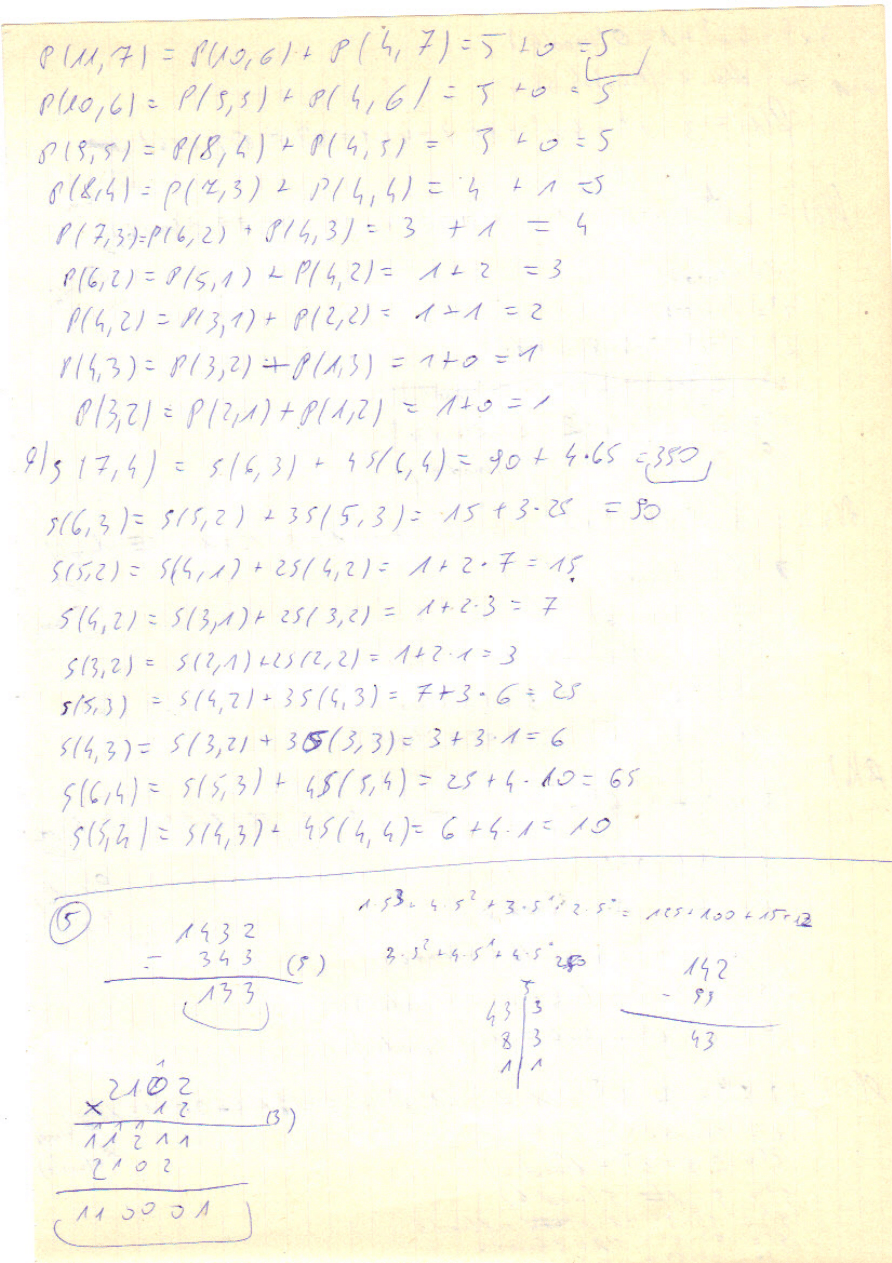 P(11,7) = P(10,6) + P(4,7) = 5 + 0 = 5
P(10,6) = P(9,5) + P(4,6) = 5 + 0 = 5
P(9,5) = P(8,4) + P(4,5) = 5 + 0 = 5
P(8,4) = P(7,3) + P(4,4) = 4 + 1 = 5
P(7,3) = P(6,2) + P(4,3) = 3 + 1 = 4
P(6,2) = P(5,1) + P(4,2) = 1 + 2 = 3
P(4,2) = P(3,1) + P(2,2) = 1 + 1 = 2
P(4,3) = P(3,2) + P(1,3) = 1 + 0 = 1
P(3,2) = P(2,1) + P(1,2) = 1 + 0 = 1
S(7,4) = S(6,3) + 4S(6,4) = 90 + 4·65 = 350
S(6,3) = S(5,2) + 3S(5,3) = 15 + 3·25 = 90
S(5,2) = S(4,1) + 2S(4,2) = 1 + 2·7 = 15
S(4,2) = S(3,1) + 2S(3,2) = 1 + 2·3 = 7
S(3,2) = S(2,1) + 2S(2,2) = 1 + 2·1 = 3
S(5,3) = S(4,2) + 3S(4,3) = 7 + 3·6 = 25
S(4,3) = S(3,2) + 3S(3,3) = 3 + 3·1 = 6
S(6,4) = S(5,3) + 4S(5,4) = 25 + 4·10 = 65
S(5,4) = S(4,3) + 4S(4,4) = 6 + 4·1 = 10
5
1432
- 343 (5)
133
1·5³ + 4·5² + 3·5¹ + 2·5° = 125 + 100 + 15 + 2
3·5² + 4·5¹ + 4·5°
5
43 | 3
8 | 3
1 | 1
142
- 99
43
1
2102
× 12 (3)
11211
2102
110001